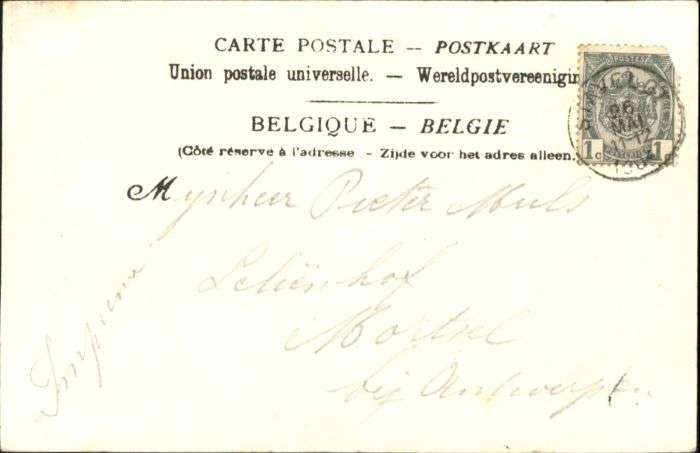 CARTE POSTALE — POSTKAART
Union postale universelle. — Wereldpostvereenigin
BELGIQUE — BELGIE
(Côté réservé à l'adresse - Zijde voor het adres alleen.
POSTES
1 c 1 c
26
MAI
11-12
Mynheer Pieter Muls
Leliënhof
Mortsel
bij Antwerpen
Imprimé